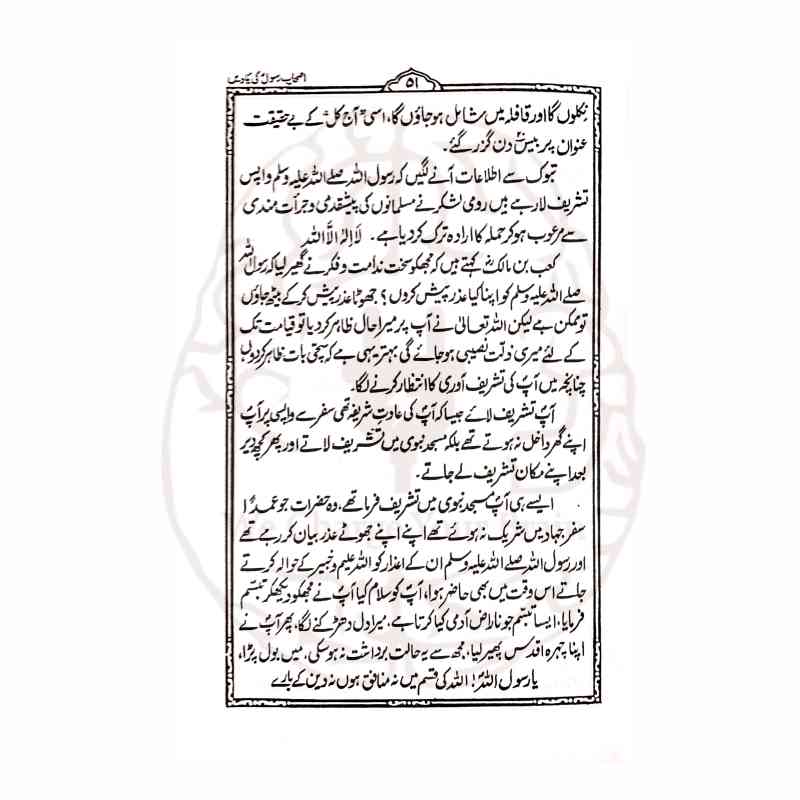 اصحابِ رسولؐ کی یاد میں
۵۱
نکلوں گا اور قافلہ میں شامل ہو جاؤں گا، اسی "آج کل" کے بے حقیقت
عنوان پر بیسؔ دن گزر گئے۔
تبوک سے اطلاعات آنے لگیں کہ رسول اللہ صلے اللہ علیہ وسلم واپس
تشریف لا رہے ہیں رومی لشکر نے مسلمانوں کی پیشقدمی و جرأت مندی
سے مرعوب ہو کر حملہ کا ارادہ ترک کر دیا ہے۔ لَا اِلٰہَ اِلَّا اللہ
کعب بن مالکؓ کہتے ہیں کہ مجھکو سخت ندامت و فکر نے گھیر لیا کہ رسول اللہ
صلے اللہ علیہ وسلم کو اپنا کیا عذر پیش کروں؟ جھوٹا عذر پیش کر کے بیٹھ جاؤں
تو ممکن ہے لیکن اللہ تعالیٰ نے آپ پر میرا حال ظاہر کر دیا تو قیامت تک
کے لئے میری ذلت نصیبی ہو جائے گی بہتر یہی ہے کہ سچی بات ظاہر کر دوں
چنانچہ میں آپؐ کی تشریف آوری کا انتظار کرنے لگا۔
آپؐ تشریف لائے جیسا کہ آپؐ کی عادتِ شریفہ تھی سفر سے واپسی پر آپؐ
اپنے گھر داخل نہ ہوتے تھے بلکہ مسجد نبوی میں تشریف لاتے اور پھر کچھ دیر
بعد اپنے مکان تشریف لے جاتے۔
ایسے ہی آپؐ مسجد نبوی میں تشریف فرما تھے، وہ حضرات جو عمدًا
سفر جہاد میں شریک نہ ہوئے تھے اپنے اپنے جھوٹے عذر بیان کر رہے تھے
اور رسول اللہ صلے اللہ علیہ وسلم ان کے اعذار کو اللہ علیم و خبیر کے حوالہ کرتے
جاتے اس وقت میں بھی حاضر ہوا، آپؐ کو سلام کیا آپؐ نے مجھکو دیکھکر تبسم
فرمایا، ایسا تبسم جو ناراض آدمی کیا کرتا ہے، میرا دل دھڑکنے لگا، پھر آپؐ نے
اپنا چہرہ اقدس پھیر لیا، مجھ سے یہ حالت برداشت نہ ہوسکی، میں بول پڑا،
یا رسول اللہؐ! اللہ کی قسم میں نہ منافق ہوں نہ دین کے بارے